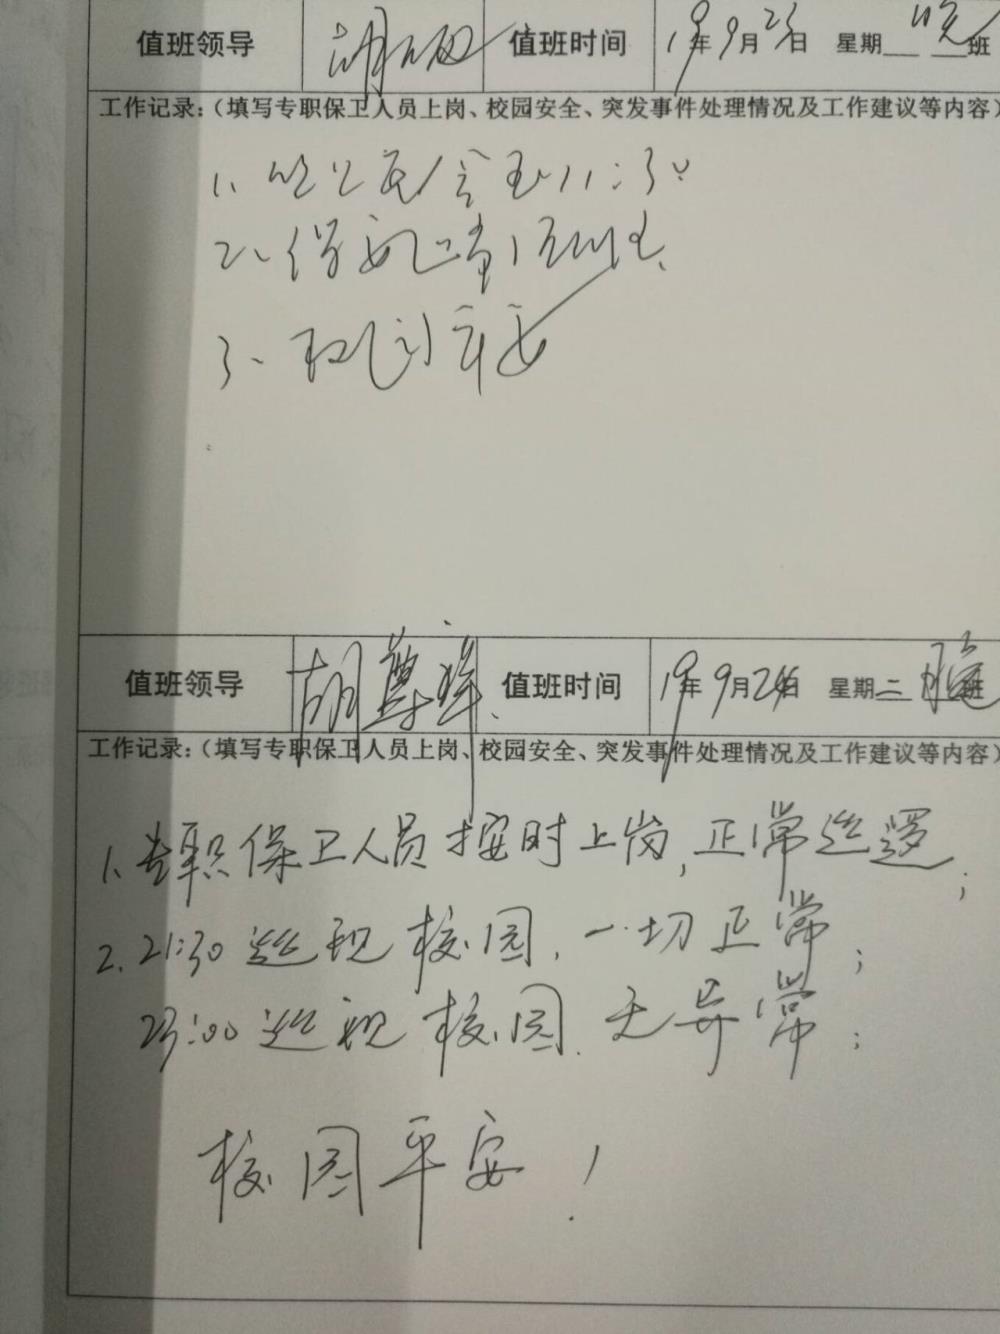 值班领导 胡 值班时间 19年9月23日 星期 晚班
工作记录：（填写专职保卫人员上岗、校园安全、突发事件处理情况及工作建议等内容）
1、 11:30
2、保安
3、校园平安
值班领导 胡尊祥 值班时间 19年9月24日 星期二 晚班
工作记录：（填写专职保卫人员上岗、校园安全、突发事件处理情况及工作建议等内容）
1、专职保卫人员按时上岗，正常巡逻；
2.21:30巡视校园，一切正常；
23:00巡视校园.无异常；
校园平安！